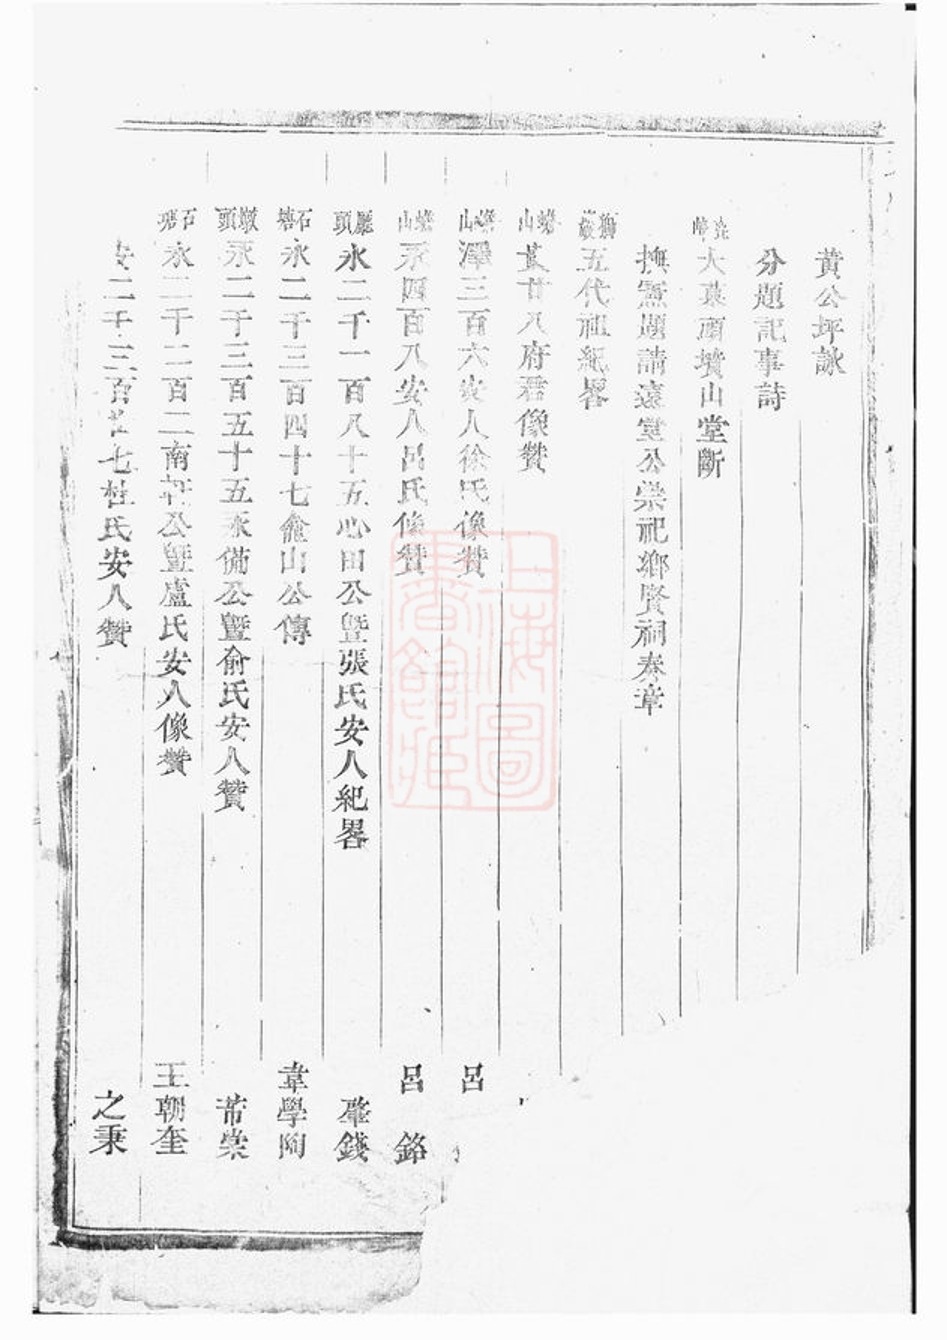 黃公坪詠
分題記事詩
大菓頭墳山堂斷
撫憲題請遠堂公崇祀鄉賢祠奏章
五代祖紀畧
廿八府君像贊
山 澤三百六安人徐氏像贊 呂
山 永四百八安人呂氏像贊 呂 鉻
廳頭 永二千一百八十五心田公暨張氏安人紀畧 肇錢
石塘 永二千三百四十七龕山公傳 韋學陶
墩頭 永二千三百五十五永備公暨俞氏安人贊 芾棠
石塘 永二千二百二南軒公暨盧氏安人像贊 王朝奎
二千三百 七杜氏安人贊 之秉
上海圖書館藏